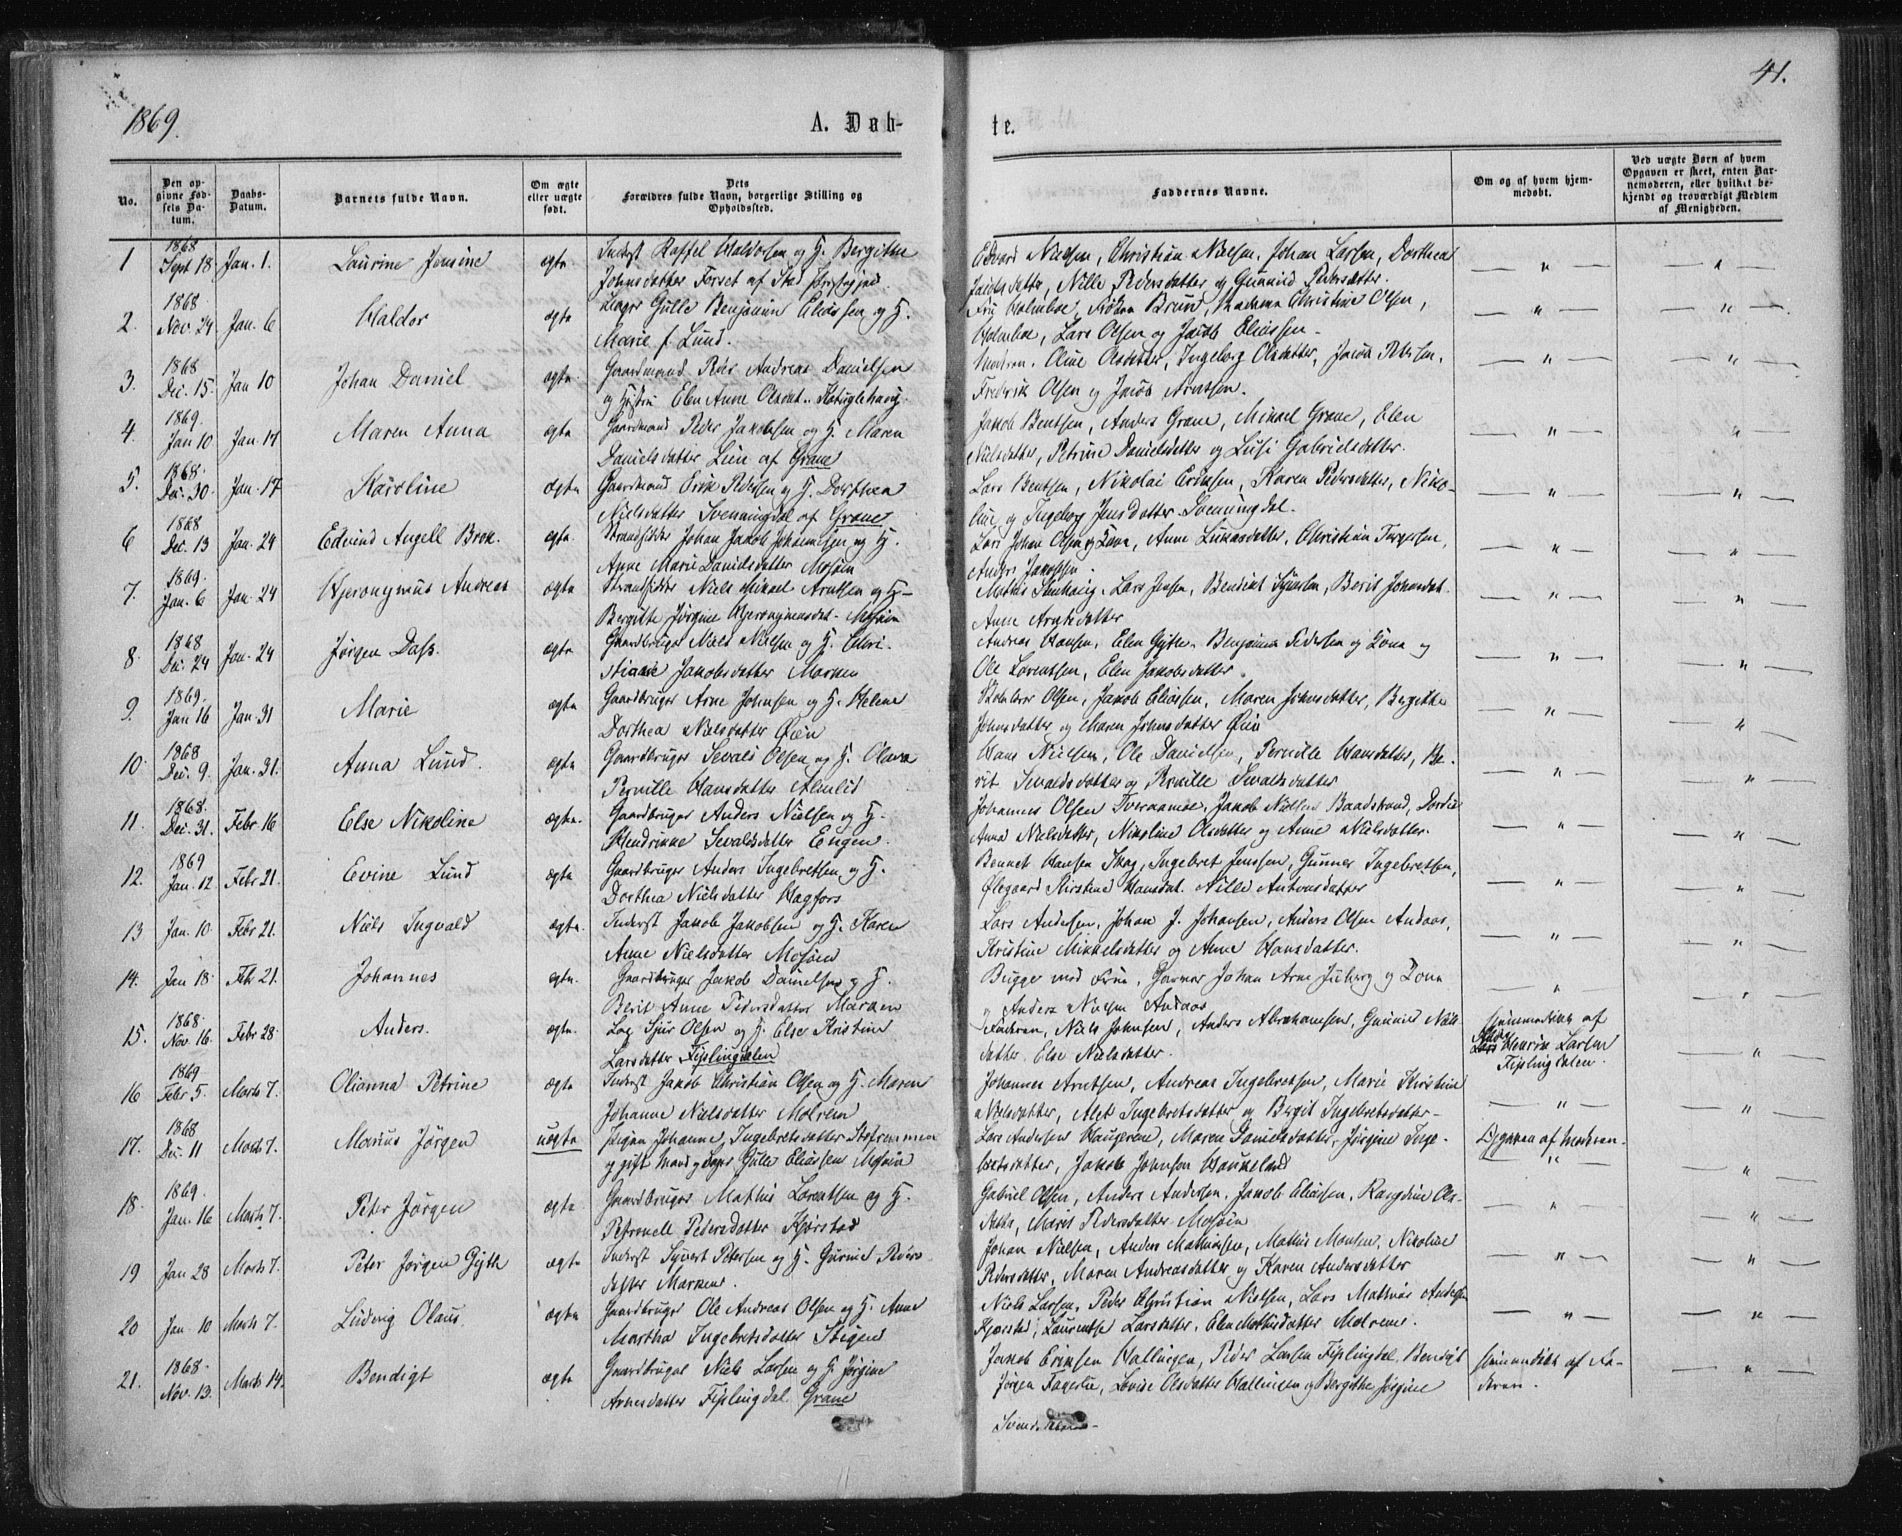 1869.
A. Døb-
te.
41.
No.
Den op-
givne Fød-
sels Da-
tum.
Daabs-
Datum.
Barnets fulde Navn.
Om ægte
eller uægte
født.
Dets
Forældres fulde Navn, borgerlige Stilling og
Opholdssted.
Faddernes Navne.
Om og af hvem hjem-
medøbt.
Ved uægte Børn af hvem
Opgaven er skeet, enten Bar-
nemoderen, eller hvilket be-
kjendt og troværdigt Medlem
af Menigheden.
1 1868 Sept 18 Jan. 1. Laurine Jensine ægte Inderst Haldorsen og H. Bergitha Johnsdatter Forset af
Edvard Nielsen, Christian Nielsen, Johan Larsen, Dorthea
Nille Pedersdatter og Gunnild Pedersdatter.
2. 1868 Nov. 24 Jan. 6 Haldor ægte Gulle Benjamin Eliassen og H.
Marie f. Lund.
Fru Holmboe, Frøken Brun, Madame Christine Olsen,
Holmboe, Lars Olsen og Jacob Eliassen.
3. 1868 Dec. 15. Jan 10 Johan Daniel ægte Gaardmand Andreas Danielsen
og Hustru Elen Anne Olsdat.
Modren, Oline Olsdatter, Ingeborg Olsdatter, Jacob Petersen,
Frederik Olsen og Jacob Arntsen.
4. 1869. Jan 10 Jan. 17 Maren Anna ægte Gaardmand Peder Jakobsen og H. Maren
Danielsdatter Lien af Grane
Jakob Bentsen, Anders Grane, Mikael Grane, Elen
Nielsdatter, Petrine Danielsdatter og Lusi Gabrielsdatter.
5. 1868. Dec. 30. Jan. 17 Karoline ægte Gaardmand Erik Pedersen og H. Dorthea
Nielsdatter Svenningdal af Grane
Lars Bentsen, Nikolai Eriksen, Karen Pedersdatter, Niko-
line og Ingeborg Jensdatter Svenningdal.
6 1868 Dec. 13 Jan. 24 Edvind Angell Brok. ægte Strandsidder Johan Jakob Johannsen og H.
Anne Marie Danielsdatter Mosøen
Lars Johan Olsen og Kone, Anne Lukasdatter, Christian Torgersen,
Anders Jakobsen.
7. 1869. Jan. 6 Jan. 24 Hjeronymus Andreas ægte Strandsidder Niels Mikael Arntsen og H.
Bergitte Jørgine Hjeronymusdat. Mosøen
Lars Jensen, Bendikt Berit Johansdat.
Anne Arntsdatter
8. 1868 Dec. 24 Jan. 24 Jørgen Dass. ægte Gaardbruger Niels Nielsen og H. Chri-
stiane Jakobsdatter Marken
Andreas Hansen, Elen Gythe, Benjamin Pedersen og Kone og
Ole Lorentsen, Elen Jakobsdatter.
9. 1869. Jan 16 Jan. 31 Marie ægte Gaardbruger Arne Johnsen og H. Helene
Dorthea Nielsdatter Øien
Olsen, Jakob Eliassen, Maren Johnsdatter, Bergitte
Johnsdatter og Maren Johnsdatter Øien
10. 1868 Dec. 9. Jan. 31. Anna Lund. ægte Gaardbruger Sevald Olsen og H. Olava
Pernille Hansdatter Almlid
Hans Nielsen, Ole Danielsen, Pernille Hansdatter, Be-
rit Sevaldsdatter og Pernille Sevaldsdatter
11. 1868. Dec. 31. Febr 16 Else Nikoline ægte. Gaardbruger Anders Nielsen og H.
Hendrikke Sevaldsdatter Engen
Johannes Olsen Tveraamoe, Jakob Nielsen Baadstrand, Dordi
Anna Nielsdatter, Nikoline Olsdatter og Anne Nielsdatter.
12. 1869 Jan. 12 Febr 21. Evine Lund ægte Gaardbruger Anders Ingebretsen og H.
Dorthea Nielsdatter Hagfors
Bennet Hansen Skog, Ingebret Jenssen, Gunner Ingebretsen,
Ølegaard Kirstine Hansdat. Nille Antonsdatter
13 Jan. 10. Febr 21. Niels Ingvald ægte. Inderst Jakob Jakobsen og H. Karen
Anne Nielsdatter Mosøen
Lars Andersen, Johan J. Johansen, Anders Olsen Andaas,
Kristine Mikkelsdatter og Anne Hansdatter.
14. Jan 18. Febr 21. Johannes ægte. Gaardbruger Jakob Danielsen og H.
Berit Anne Pedersdatter Marken
Bugge med Frue, Garver Johan Arne Juberg og Kone
og Anders Nielsen Andaas
15. 1868 Nov. 16. Febr 28. Anders. ægte. Log Sjur Olsen og H. Else Kristine
Larsdatter Fiplingdalen
Fadren, Niels Johnsen, Anders Abrahamsen, Gunnild Niels-
datter, Else Nielsdatter.
hjemmedøbt af
Henrik Larsen
Fiplingdalen.
16 1869 Febr 5. Marts 7. Olianna Petrine ægte Inderst Jakob Christian Olsen og H. Maren
Johanne Nielsdatter Molrem
Johannes Arntsen, Andreas Ingebretsen, Marie Kirstine
Nielsdatter, Alet Ingebretsdatter og Bergit Ingebretsdatter
17. 1868 Dec. 11 Marts 7. Marius Jørgen uægte Pigen Johanne Ingebretsdatter
og gift Mand Gulle Eliassen Mosøen
Lars Andersen Maren Danielsdatter, Jørgine Inge-
bretsdatter, Jakob Johnson
Opgaven af Modren
18. 1869. Jan. 16 Marts 7. Peter Jørgen ægte Gaardbruger Mathis Lorentsen og H.
Petronell Pedersdatter Kjørstad
Gabriel Olsen, Anders Andersen, Jakob Eliassen, Ragndine Ols-
datter, Maris Pedersdatter Mosøen
19 Jan 28 Marts 7. Peter Jørgen Gyth ægte Inderst Sivert Petersen og H. Gurine Peders-
datter Marken.
Johan Nielsen, Anders Mathisen, Mathis Monsen, Nikoline
Pedersdatter, Maren Andreasdatter og Karen Andersdatter
20 Jan 10 Marts 7. Ludvig Olaus. ægte Gaardbruger Ole Andreas Olsen og H. Anne
Martha Ingebretsdatter Stigen
Niels Larsen, Peder Christian Nielsen, Lars Mathias Andersen
Kjørstad, Laurentse Larsdatter, Elen Mathisdatter Molrem.
21. 1868. Nov. 13. Marts 14. Bendigt ægte Gaardbruger Niels Larsen og H. Jørgine
Arnesdatter Fiplingdal Grane
Jakob Eriksen Hallingen, Peder Larsen Fiplingdal, Bendigt
Jørgen Fagerlie, Lovise Olsdatter Hallingen og Bergithe Jørgine
hjemmedøbt af Fa-
deren.